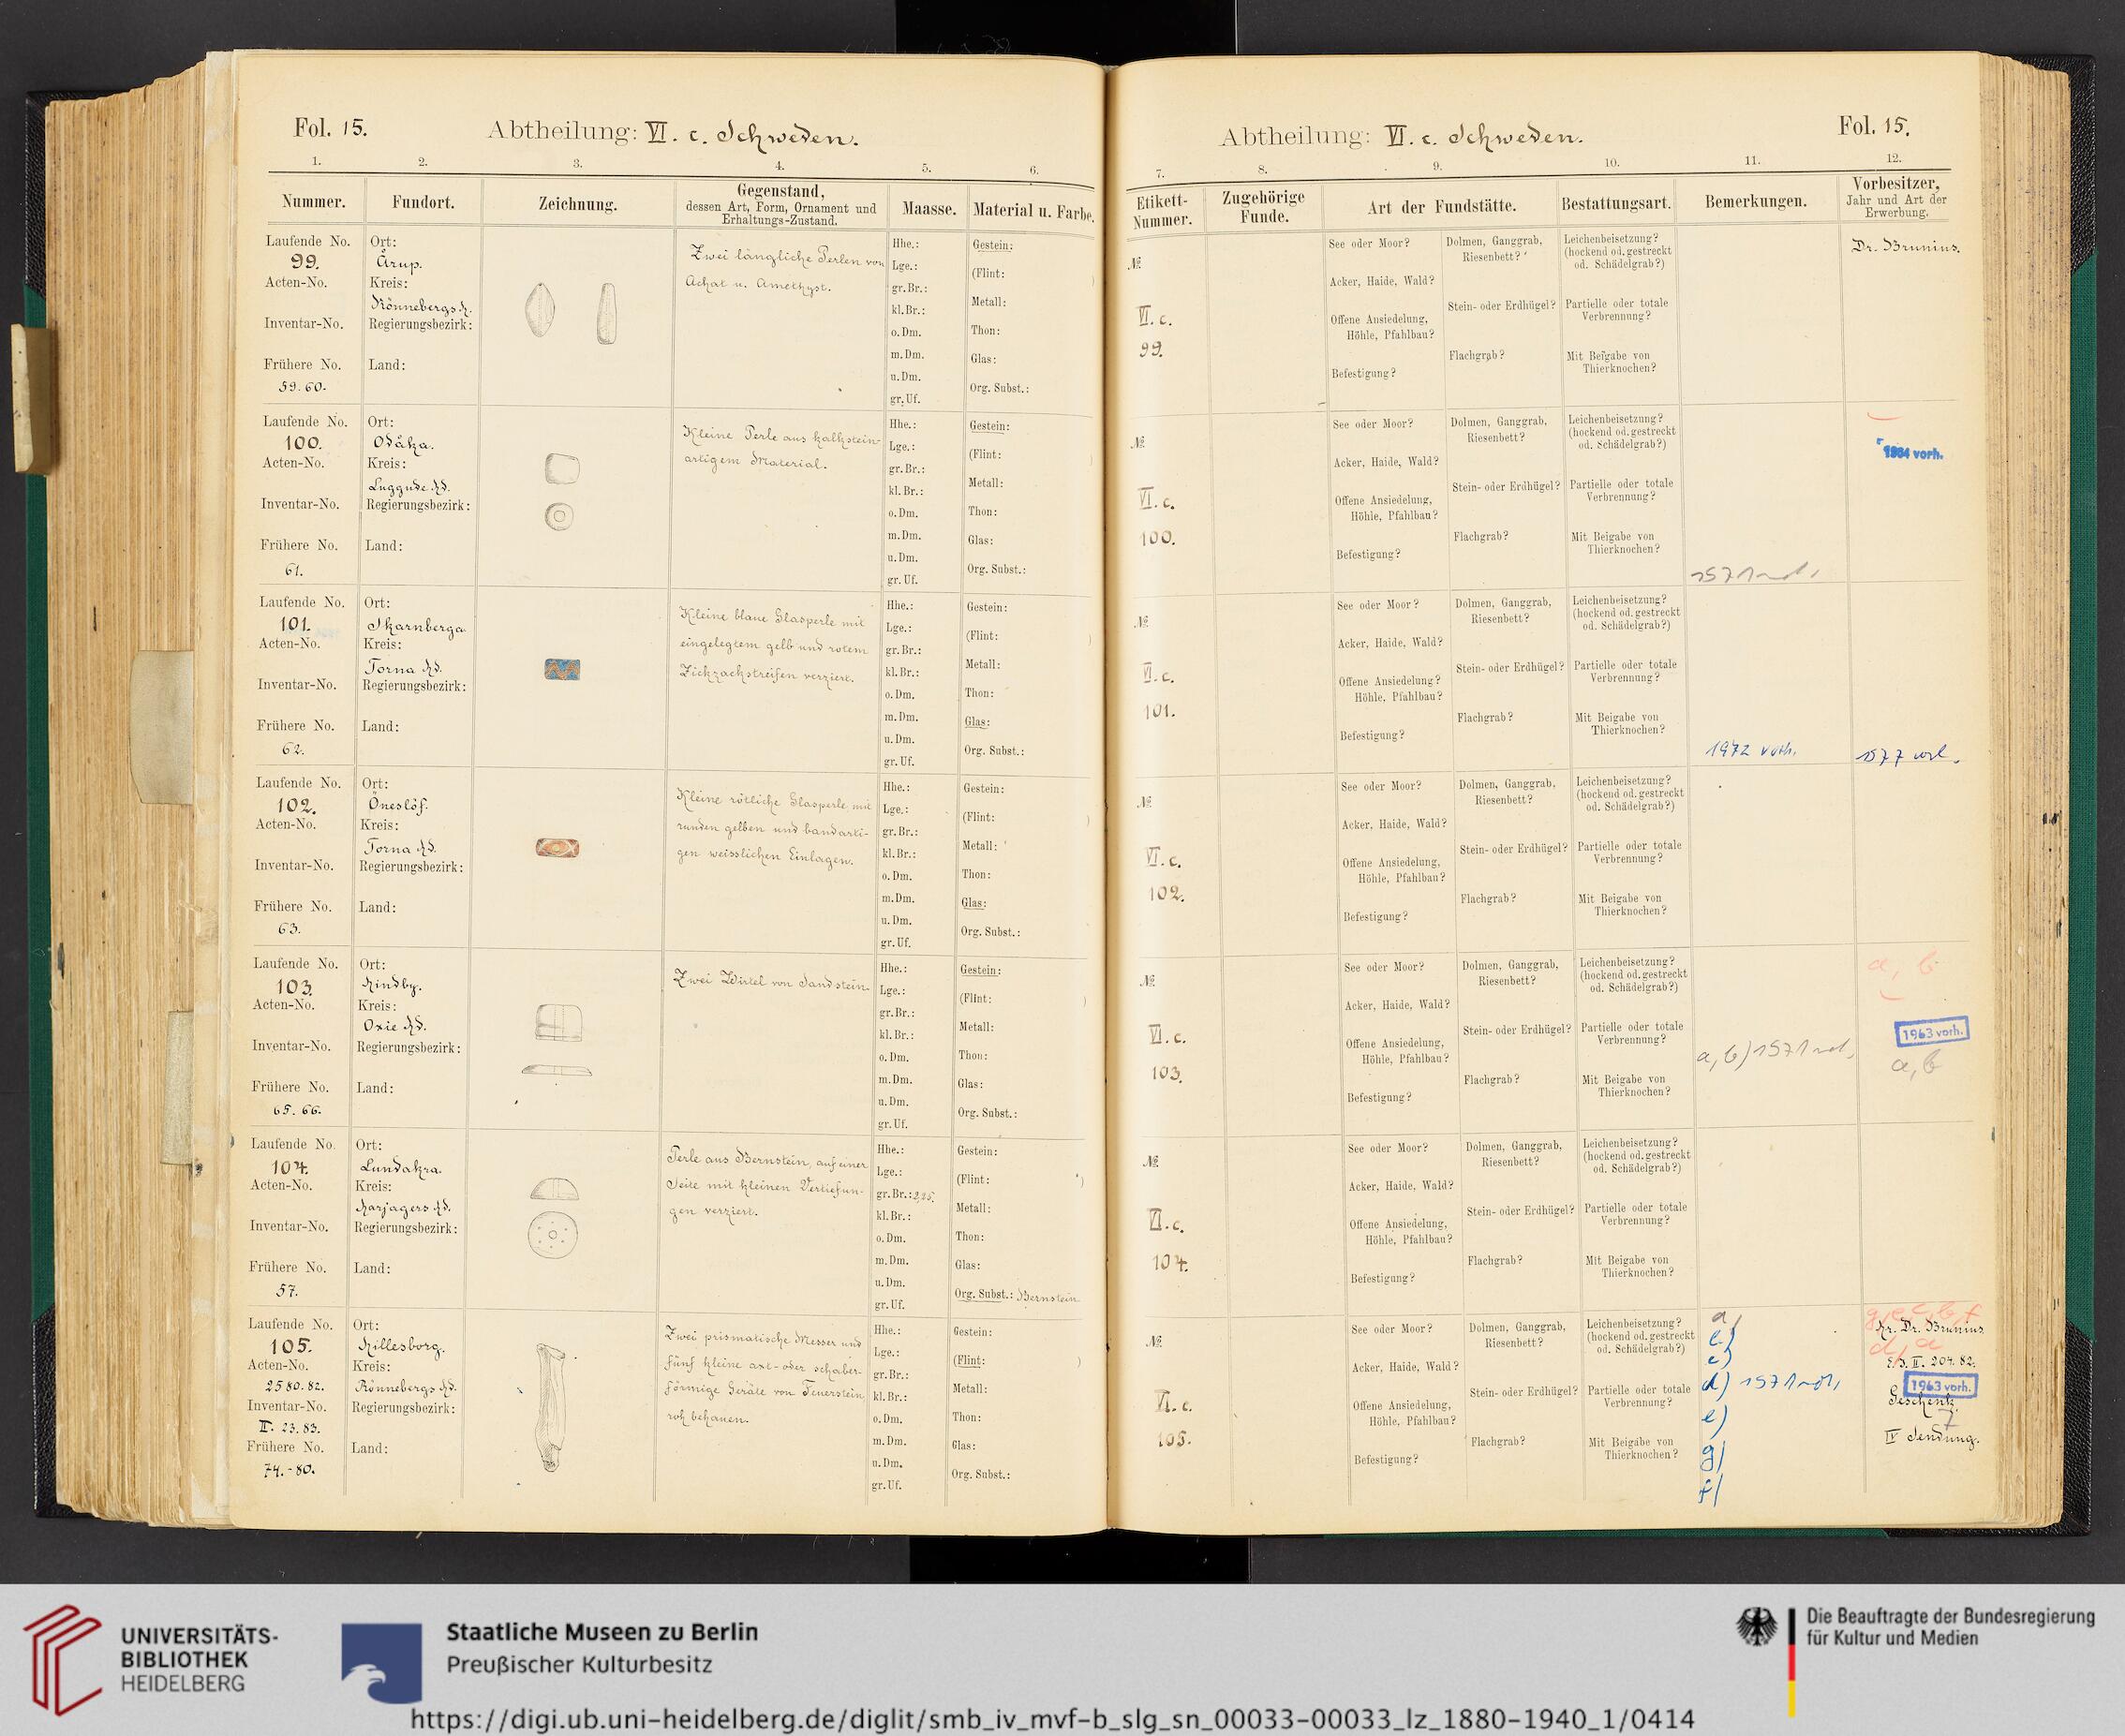 Fol. 15.
Abtheilung: VI. c. Schweden.
1. 2. 3. 4. 5. 6.
Nummer. Fundort. Zeichnung. Gegenstand, dessen Art, Form, Ornament und Erhaltungs-Zustand. Maasse. Material u. Farbe.
Laufende No. 99.
Acten-No.
Inventar-No.
Frühere No. 59. 60.
Ort: Årup.
Kreis: Rönnebergs H.
Regierungsbezirk:
Land:
Zwei längliche Perlen von
Achat u. Amethyst.
Hhe.:
Lge.:
gr. Br.:
kl. Br.:
o. Dm.
m. Dm.
u. Dm.
gr. Uf.
Gestein:
(Flint: )
Metall:
Thon:
Glas:
Org. Subst.:
Laufende No. 100.
Acten-No.
Inventar-No.
Frühere No. 61.
Ort: Odåka.
Kreis: Luggude Hd.
Regierungsbezirk:
Land:
Kleine Perle aus kalkstein-
artigem Material.
Hhe.:
Lge.:
gr. Br.:
kl. Br.:
o. Dm.
m. Dm.
u. Dm.
gr. Uf.
Gestein:
(Flint: )
Metall:
Thon:
Glas:
Org. Subst.:
Laufende No. 101.
Acten-No.
Inventar-No.
Frühere No. 62.
Ort: Skarnberga
Kreis: Torna Hd.
Regierungsbezirk:
Land:
Kleine blaue Glasperle mit
eingelegtem gelb und rotem
Zickzackstreifen verziert.
Hhe.:
Lge.:
gr. Br.:
kl. Br.:
o. Dm.
m. Dm.
u. Dm.
gr. Uf.
Gestein:
(Flint: )
Metall:
Thon:
Glas:
Org. Subst.:
Laufende No. 102.
Acten-No.
Inventar-No.
Frühere No. 63.
Ort: Öneslöf.
Kreis: Torna Hd.
Regierungsbezirk:
Land:
Kleine rötliche Glasperle mit
runden gelben und bandarti-
gen weisslichen Einlagen.
Hhe.:
Lge.:
gr. Br.:
kl. Br.:
o. Dm.
m. Dm.
u. Dm.
gr. Uf.
Gestein:
(Flint: )
Metall:
Thon:
Glas:
Org. Subst.:
Laufende No. 103.
Acten-No.
Inventar-No.
Frühere No. 65. 66.
Ort: Hindby.
Kreis: Oxie Hd.
Regierungsbezirk:
Land:
Zwei Wirtel von Sandstein.
Hhe.:
Lge.:
gr. Br.:
kl. Br.:
o. Dm.
m. Dm.
u. Dm.
gr. Uf.
Gestein:
(Flint: )
Metall:
Thon:
Glas:
Org. Subst.:
Laufende No. 104.
Acten-No.
Inventar-No.
Frühere No. 57.
Ort: Lundakra.
Kreis: Harjagers Hd.
Regierungsbezirk:
Land:
Perle aus Bernstein, auf einer
Seite mit kleinen Vertiefun-
gen verziert.
Hhe.:
Lge.:
gr. Br.: 2,25.
kl. Br.:
o. Dm.
m. Dm.
u. Dm.
gr. Uf.
Gestein:
(Flint: )
Metall:
Thon:
Glas:
Org. Subst.: Bernstein
Laufende No. 105.
Acten-No. 2580. 82.
Inventar-No. II. 23. 83.
Frühere No. 74.-80.
Ort: Hillesborg.
Kreis: Rönnebergs Hd.
Regierungsbezirk:
Land:
Zwei prismatische Messer und
fünf kleine axt- oder schaber-
förmige Geräte von Feuerstein,
roh behauen.
Hhe.:
Lge.:
gr. Br.:
kl. Br.:
o. Dm.
m. Dm.
u. Dm.
gr. Uf.
Gestein:
(Flint: )
Metall:
Thon:
Glas:
Org. Subst.:
Abtheilung: VI. c. Schweden.
Fol. 15.
7. 8. 9. 10. 11. 12.
Etikett-Nummer. Zugehörige Funde. Art der Fundstätte. Bestattungsart. Bemerkungen. Vorbesitzer, Jahr und Art der Erwerbung.
№ VI. c. 99.
See oder Moor?
Acker, Haide, Wald?
Offene Ansiedelung, Höhle, Pfahlbau?
Befestigung?
Dolmen, Ganggrab, Riesenbett?
Stein- oder Erdhügel?
Flachgrab?
Leichenbeisetzung? (hockend od. gestreckt od. Schädelgrab?)
Partielle oder totale Verbrennung?
Mit Beigabe von Thierknochen?
Dr. Brunius.
№ VI. c. 100.
See oder Moor?
Acker, Haide, Wald?
Offene Ansiedelung, Höhle, Pfahlbau?
Befestigung?
Dolmen, Ganggrab, Riesenbett?
Stein- oder Erdhügel?
Flachgrab?
Leichenbeisetzung? (hockend od. gestreckt od. Schädelgrab?)
Partielle oder totale Verbrennung?
Mit Beigabe von Thierknochen?
1964 vorh.
№ VI. c. 101.
See oder Moor?
Acker, Haide, Wald?
Offene Ansiedelung? Höhle, Pfahlbau?
Befestigung?
Dolmen, Ganggrab, Riesenbett?
Stein- oder Erdhügel?
Flachgrab?
Leichenbeisetzung? (hockend od. gestreckt od. Schädelgrab?)
Partielle oder totale Verbrennung?
Mit Beigabe von Thierknochen?
1972 vorh.
№ VI. c. 102.
See oder Moor?
Acker, Haide, Wald?
Offene Ansiedelung, Höhle, Pfahlbau?
Befestigung?
Dolmen, Ganggrab, Riesenbett?
Stein- oder Erdhügel?
Flachgrab?
Leichenbeisetzung? (hockend od. gestreckt od. Schädelgrab?)
Partielle oder totale Verbrennung?
Mit Beigabe von Thierknochen?
№ VI. c. 103.
See oder Moor?
Acker, Haide, Wald?
Offene Ansiedelung, Höhle, Pfahlbau?
Befestigung?
Dolmen, Ganggrab, Riesenbett?
Stein- oder Erdhügel?
Flachgrab?
Leichenbeisetzung? (hockend od. gestreckt od. Schädelgrab?)
Partielle oder totale Verbrennung?
Mit Beigabe von Thierknochen?
a, b)
a, b
1963 vorh.
a, b
№ VI. c. 104.
See oder Moor?
Acker, Haide, Wald?
Offene Ansiedelung, Höhle, Pfahlbau?
Befestigung?
Dolmen, Ganggrab, Riesenbett?
Stein- oder Erdhügel?
Flachgrab?
Leichenbeisetzung? (hockend od. gestreckt od. Schädelgrab?)
Partielle oder totale Verbrennung?
Mit Beigabe von Thierknochen?
№ VI. c. 105.
See oder Moor?
Acker, Haide, Wald?
Offene Ansiedelung, Höhle, Pfahlbau?
Befestigung?
Dolmen, Ganggrab, Riesenbett?
Stein- oder Erdhügel?
Flachgrab?
Leichenbeisetzung? (hockend od. gestreckt od. Schädelgrab?)
Partielle oder totale Verbrennung?
Mit Beigabe von Thierknochen?
d)
e)
g)
f)
Hr. Dr. Brunius
d, a
II. 204. 82.
1963 vorh.
Geschenk.
7
IV Sendung.
UNIVERSITÄTS-
BIBLIOTHEK
HEIDELBERG
Staatliche Museen zu Berlin
Preußischer Kulturbesitz
Die Beauftragte der Bundesregierung
für Kultur und Medien
https://digi.ub.uni-heidelberg.de/diglit/smb_iv_mvf-b_slg_sn_00033-00033_lz_1880-1940_1/0414